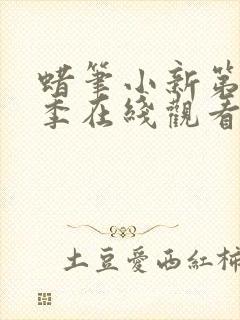 蜡筆小新第
季在綫觀看
土豆愛西紅柿